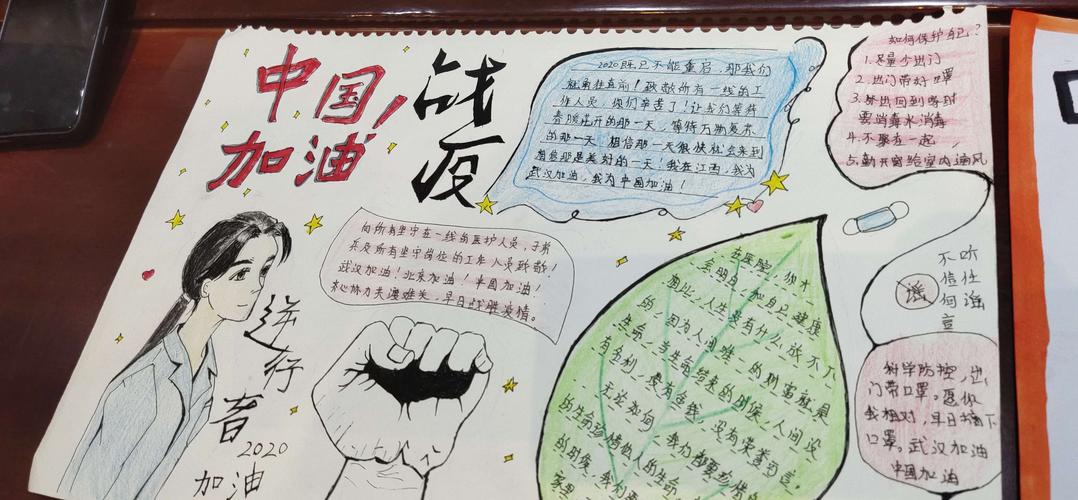 中国
加油
战
疫
2020既已不能重启,那我们
就勇往直前!致敬所有一线的工
作人员,你们辛苦了!让我们等待
春暖花开的那一天,等待万物复苏
的那一天,相信那一天很快就会来到
相信那是美好的一天!我在江西,我为
武汉加油,我为中国加油!
如何保护自己?
1.尽量少出门
2.出门带好口罩
3.外出回到家时
要消毒水消毒
4.不聚在一起,
5.勤开窗给室内通风
向所有坚守在一线的医护人员,子弟
兵及所有坚守岗位的工作人员致敬!
武汉加油!北京加油!中国加油!
齐心协力共渡难关,早日战胜疫情。
逆行者
2020
加油
在医院,你才
会明白,和自己健康
相比,人生没有什么放不下
的,因为人间难
生命,当生命结束的时候,人间没
有名利,没有金钱,没有荣誉
无论如何,我们都要珍惜
的生命珍惜他人的生命,
的时候,我们要
家里
不听
信任
何谣
言
谣
科学防控,出
门带口罩。愿你
我相对,早日摘下
口罩。武汉加油
中国加油